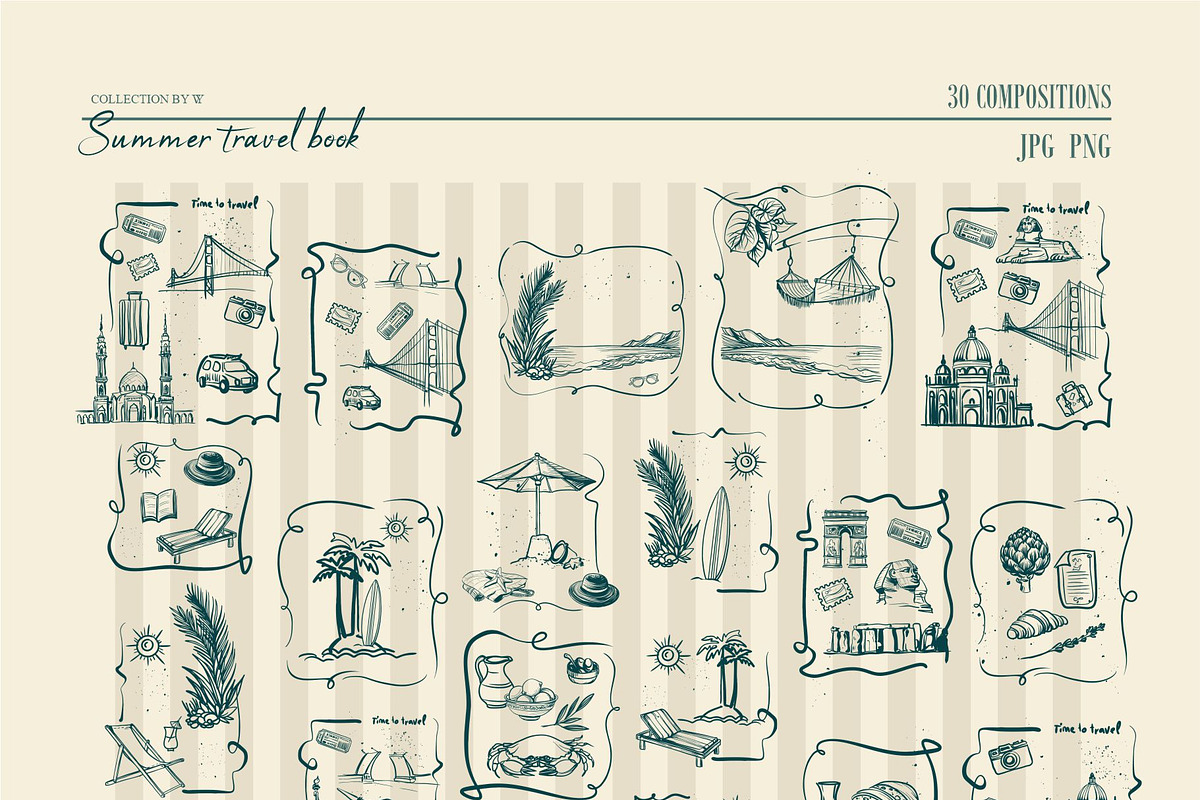 COLLECTION BY W
30 COMPOSITIONS
Summer travel book
JPG PNG
Time to travel
Time to travel
Time to travel
Time to travel